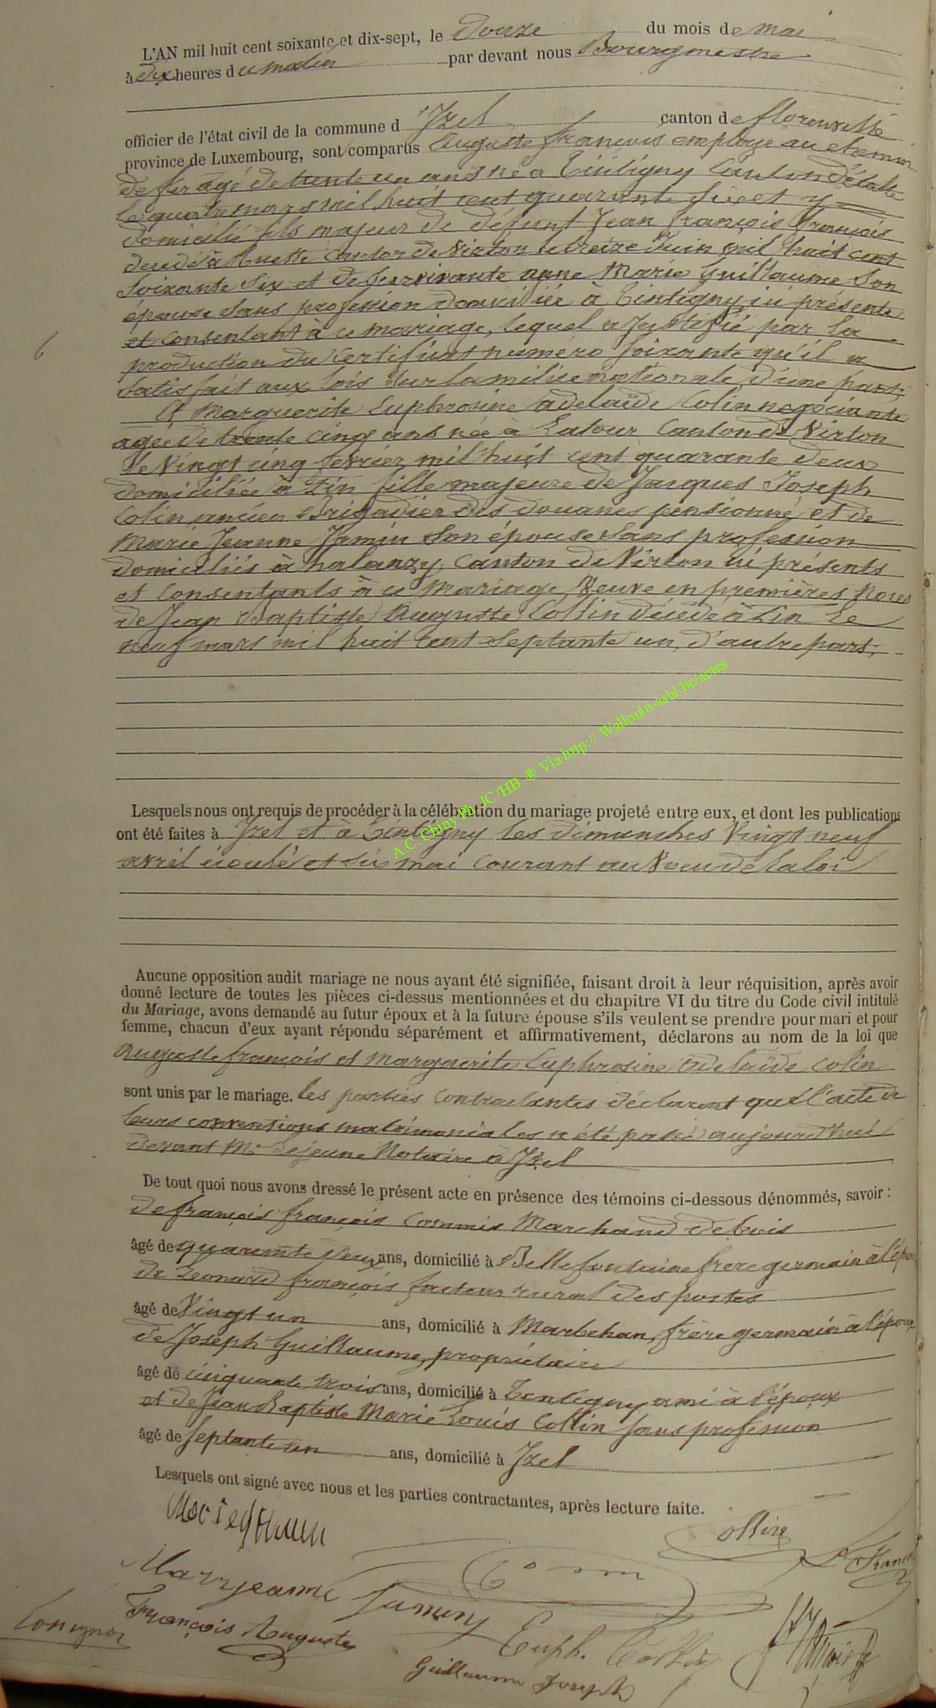 L'AN mil huit cent soixante et dix-sept, le douze du mois de mai
à dix heures du matin par devant nous Bourgmestre
officier de l'état civil de la commune d'Izel canton de florenville
province de Luxembourg, sont comparus Auguste françois employé au chemin
de fer agé de trente un ans né à Tintigny Canton d'Etalle
le quatre mars mil huit cent quarante six et y
domicilié fils majeur de défunt Jean françois françois
décédé à Ruette Canton de Virton le treize Juin mil huit cent
soixante six et de survivante Marie Guillaume son
épouse sans profession domiciliée à Tintigny, ici présente
et consentant à ce mariage, lequel a justifié par la
production du certificat numéro soixante qu'il a
satisfait aux lois sur la milice nationale d'une part;
Et Marguerite Euphrosine adelaïde Colin négociante
agée de trente cinq ans née à Latour Canton de Virton
le vingt cinq fevrier mil huit cent quarante deux
domiciliée à fille majeure de Jacques Joseph
Colin ancien Brigadier des douanes pensionné et de
Marie Jeanne Jamin son épouse sans profession
domiciliés à halanzy, Canton de Virton ici présents
et Consentants à ce Mariage, Veuve en premières Noces
de Jean Baptiste Auguste Collin décédé à le
neuf mars mil huit cent septante un, d'autre part;
A.C. Chiny Ph. JC /HB ® Via http:// Wallonia-asbl.be/actes
Lesquels nous ont requis de procéder à la célébration du mariage projeté entre eux, et dont les publications
ont été faites à Izel et à Tintigny les dimanches Vingt neuf
avril écoulé et six mai courant au Voeu de la loi
Aucune opposition audit mariage ne nous ayant été signifiée, faisant droit à leur réquisition, après avoir
donné lecture de toutes les pièces ci-dessus mentionnées et du chapitre VI du titre du Code civil intitulé
du Mariage, avons demandé au futur époux et à la future épouse s'ils veulent se prendre pour mari et pour
femme, chacun d'eux ayant répondu séparément et affirmativement, déclarons au nom de la loi que
Auguste françois et Marguerite Euphrosine adelaïde Colin
sont unis par le mariage. les parties contractantes déclarent que l'acte de
leurs conventions matrimoniales a été passé aujourd'hui
devant Mr Lejeune Notaire à Izel
De tout quoi nous avons dressé le présent acte en présence des témoins ci-dessous dénommés, savoir :
de françois françois Commis Marchand de bois
âgé de quarante deux ans, domicilié à Bellefontaine frère germain à l'époux
de Léonard françois facteur rural des postes
âgé de Vingt un ans, domicilié à Marbehan, frère germain à l'époux
de Joseph Guillaume, propriétaire
âgé de cinquante trois ans, domicilié à Tintigny ami à l'époux
et de Jean Baptiste Marie Louis Collin sans profession
âgé de septante un ans, domicilié à Izel
Lesquels ont signé avec nous et les parties contractantes, après lecture faite.
Collin
Marrjeanne Jamin
François Auguste
Euph. Collin
Guillaume Joseph